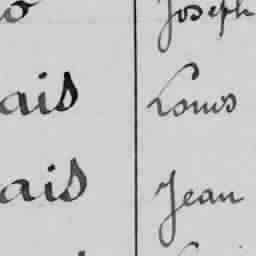 Joseph
ais Louis
ais Jean